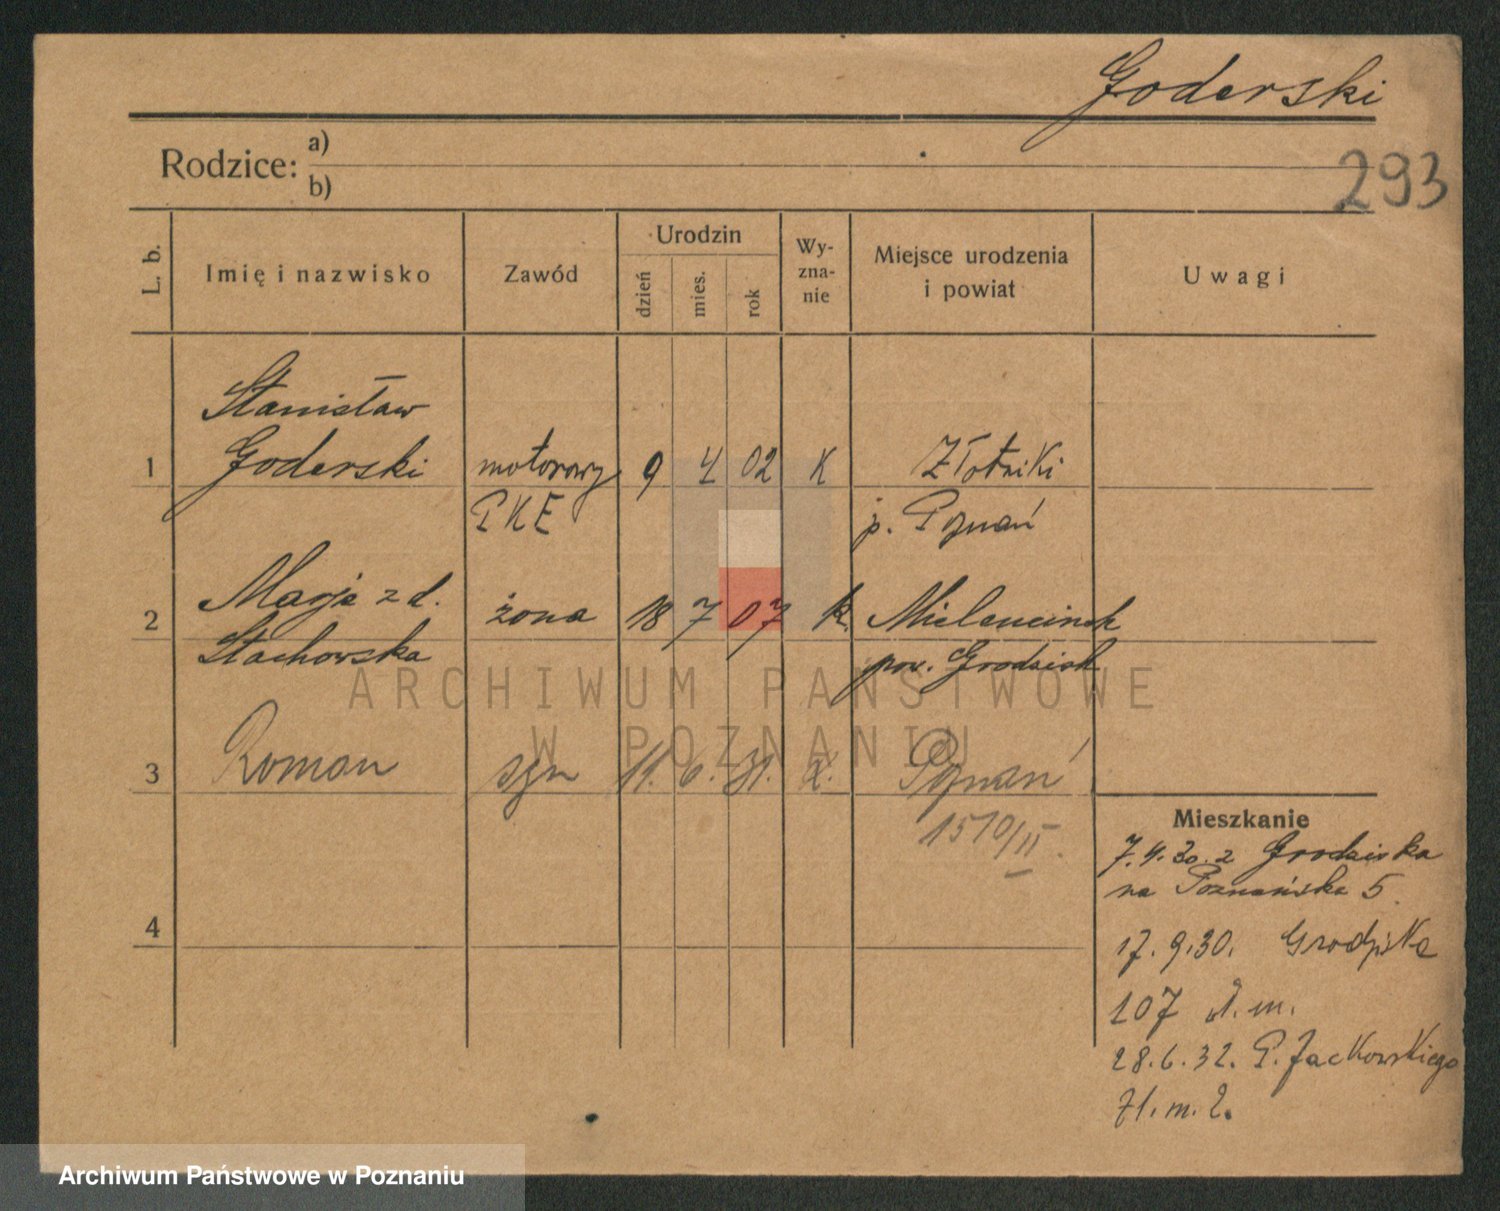 Goderski
Rodzice: a)
b)
293
L. b.
Imię i nazwisko
Zawód
Urodzin
dzień
mies.
rok
Wy-
zna-
nie
Miejsce urodzenia
i powiat
Uwagi
Stanisław
1 Goderski motorowy 9 4 02 K Złotniki
PKE p. Poznań
Marja z d.
2 żona 18 7 07 k.
Stachowska pow. Grodzisk
3 Roman syn 11. 6. 31. k. Poznań
1510/II.
4
Mieszkanie
7.4.30. z Grodziska
na Poznańska 5.
17.9.30. Grodziska
107 m.
28.6.32. P. Jackowskiego
71. m. 2.
ARCHIWUM PAŃSTWOWE
W POZNANIU
Archiwum Państwowe w Poznaniu